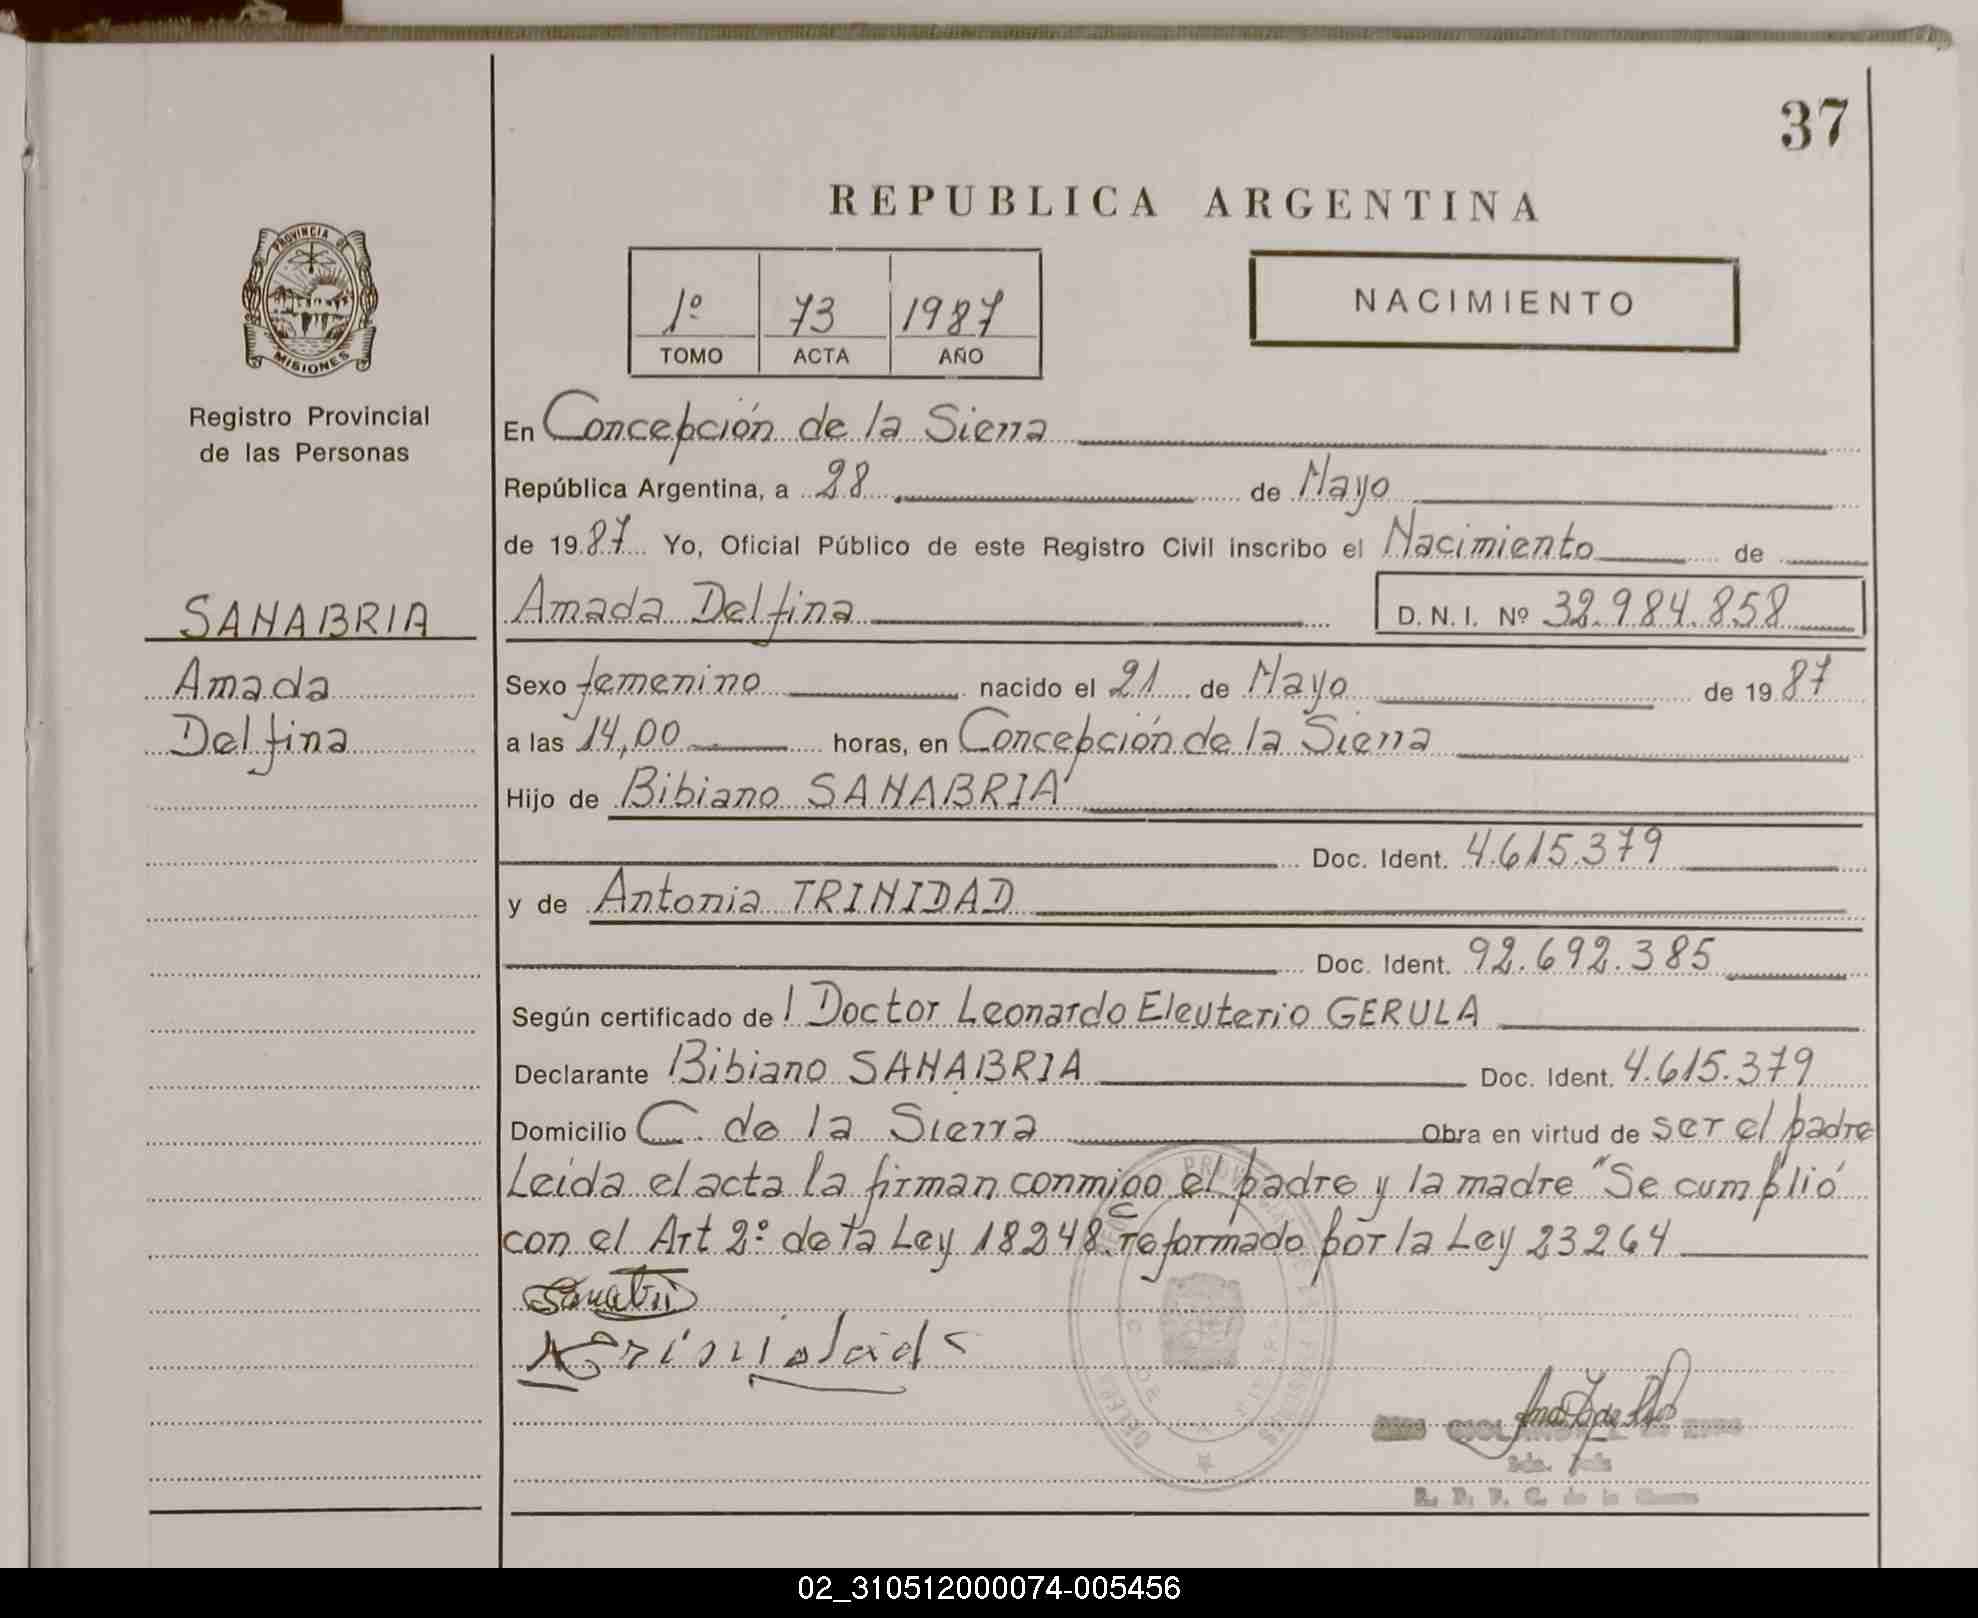 37
REPUBLICA ARGENTINA
PROVINCIA DE
MISIONES
Registro Provincial
de las Personas
1º 73 1987
TOMO ACTA AÑO
NACIMIENTO
En Concepción de la Sierra
República Argentina, a 28 de Mayo
de 1987 Yo, Oficial Público de este Registro Civil inscribo el Nacimiento de
SANABRIA
Amada
Delfina
Amada Delfina D. N. I. Nº 32.984.858
Sexo femenino nacido el 21 de Mayo de 1987
a las 14,00 horas, en Concepción de la Sierra
Hijo de Bibiano SANABRIA
Doc. Ident. 4.615.379
y de Antonia TRINIDAD
Doc. Ident. 92.692.385
Según certificado de l Doctor Leonardo Eleuterio GERULA
Declarante Bibiano SANABRIA Doc. Ident. 4.615.379
Domicilio C. de la Sierra Obra en virtud de ser el padre
Leida el acta la firman conmigo el padre y la madre "Se cumplió
con el Art 2º de la Ley 18248 reformado por la Ley 23264
02_310512000074-005456